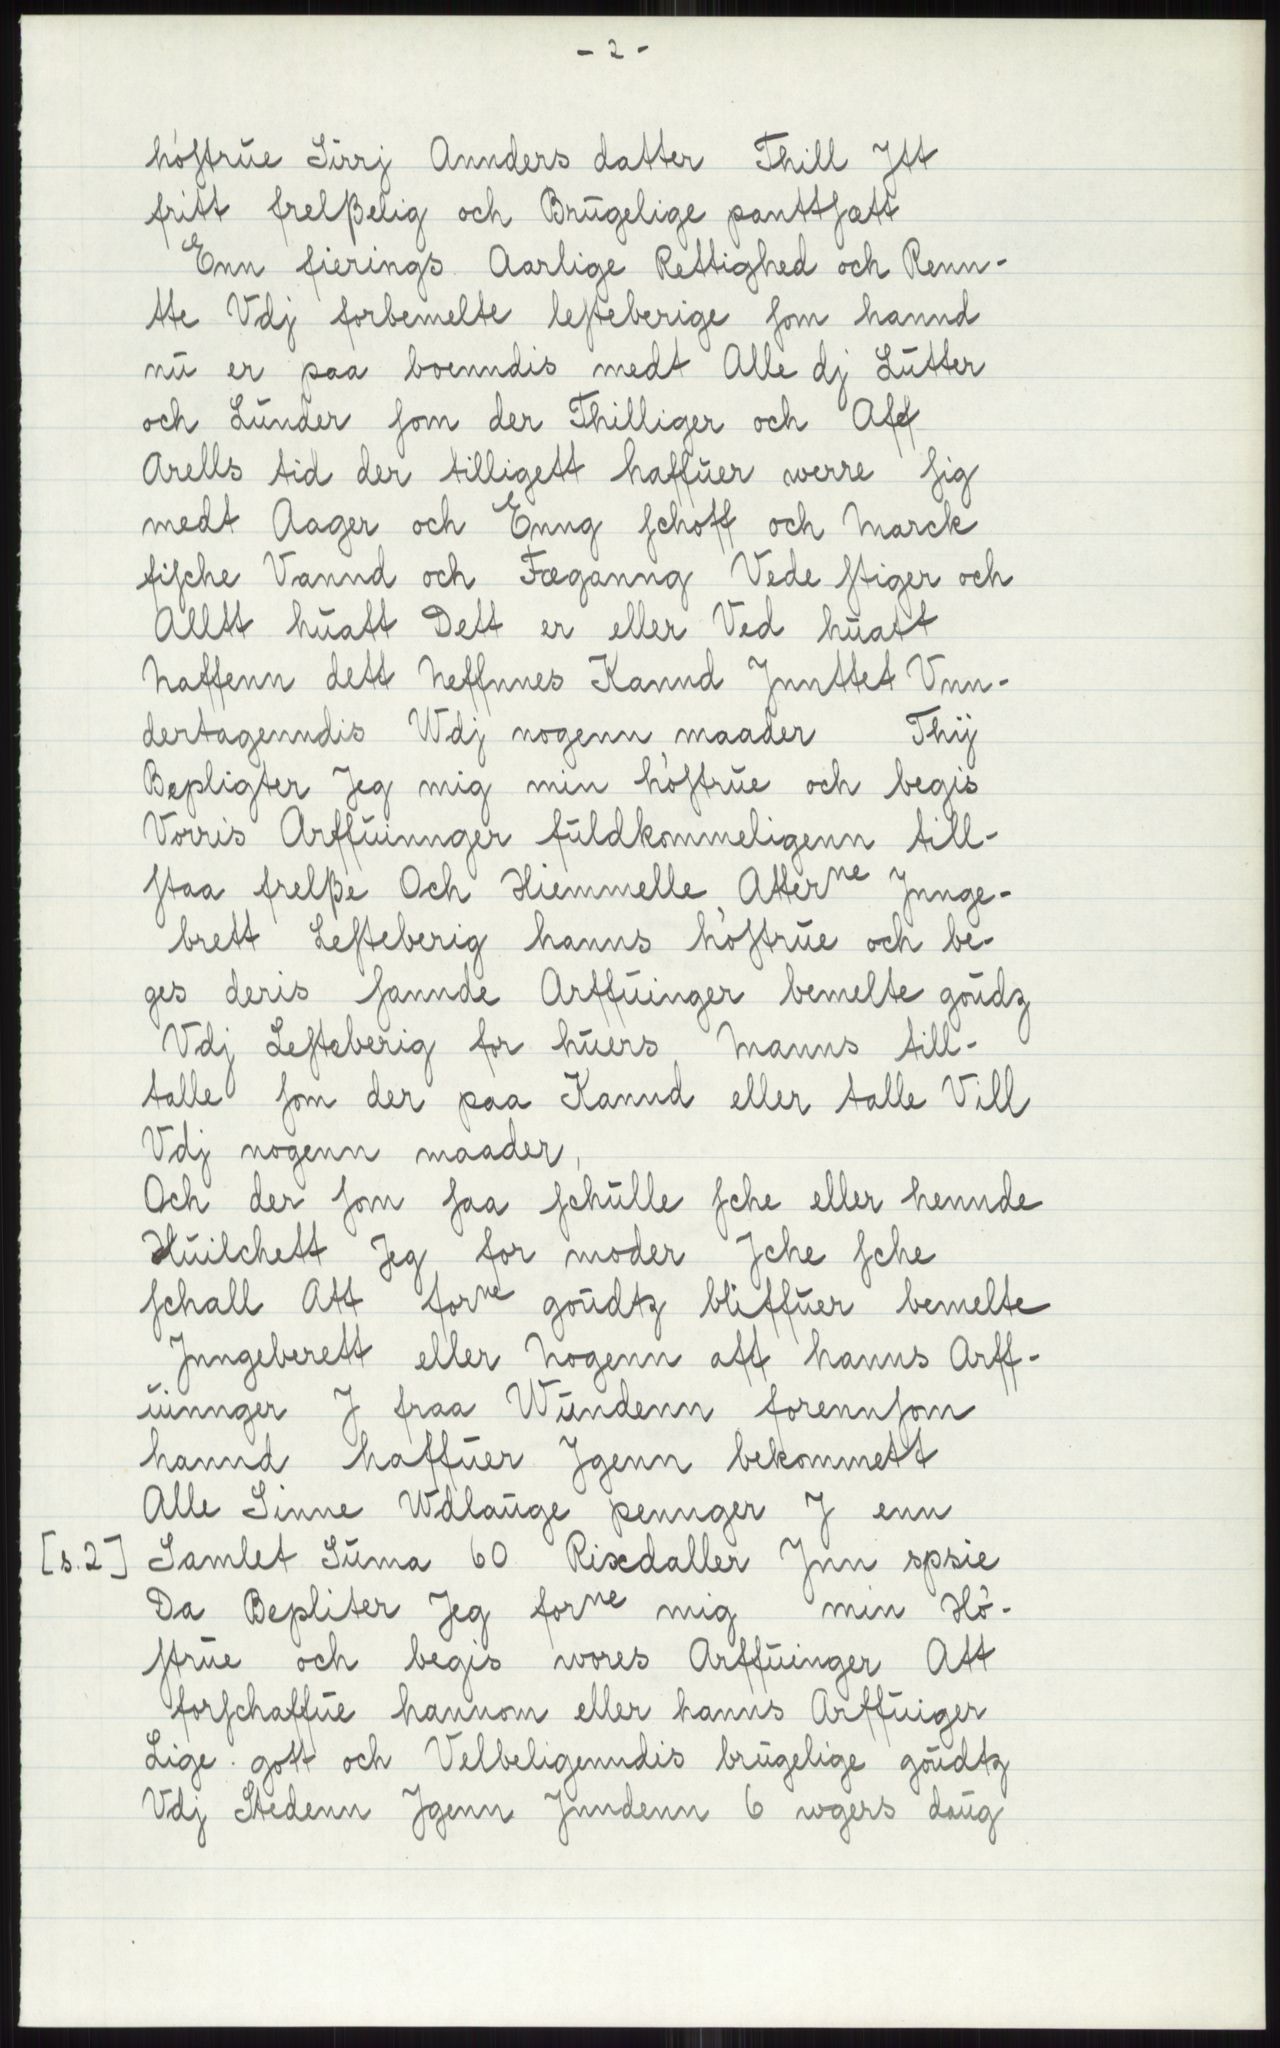 - 2 -
höstrŭe Sirrj Annders datter Thill Jtt
fritt frelßelig och Brŭgelige panttſatt
Enn fierings Aarlige Rettighed och Renn-
tte Vdj forbemelte leſteberige ſom hannd
nŭ er paa boenndis medt Alle dj Lŭtter
och Lŭnder ſom der Thilliger och Aff
Arells tid der tilligett haffŭer werre ſig
medt Aager och Enng ſchoff och Marck
fiſche Vannd och Fæganng Vede ſtiger och
Alltt hŭatt Dett er eller Ved hŭatt
Naffenn dett Neffnnes Kannd Jnnttet Vnn-
dertagenndis Wdj nogenn maader Thij
Bepligter Jeg mig min höſtrŭe och begis
Vorris Arffŭinnger fŭldkommeligenn till-
ſtaa frelße Och Hiemmelle Atterne Jnnge-
brett Leſteberig hanns höſtrŭe och be-
ges deris ſannde Arffŭinger bemelte goŭdz
Vdj Leſteberig for hŭers Manns till-
talle ſom der paa Kannd eller talle Vill
Vdj nogenn maader,
Och der ſom ſaa ſchŭlle ſche eller hennde
Hŭilchett Jeg for moder Jche ſche
ſchall Att forne goŭdtz bliffŭer bemelte
Jnngeberett eller Nogenn aff hanns Arff-
ŭinnger J fraa Wŭndenn forennſom
hannd haffŭer Jgenn bekommett
Alle Sinne Wdlaŭge pennger J enn
[s. 2] Samlet Sŭma 60 Rixdaller Jnn spsie
Da Bepliter Jeg forne mig min Hö-
ſtrŭe och begis wores Arffŭinger Att
forſchaffŭe hannom eller hanns Arffŭiger
Lige gott och Velbeligenndis brŭgelige goŭdtz
Vdj Stedenn Jgenn Jnndenn 6 wgers daŭg